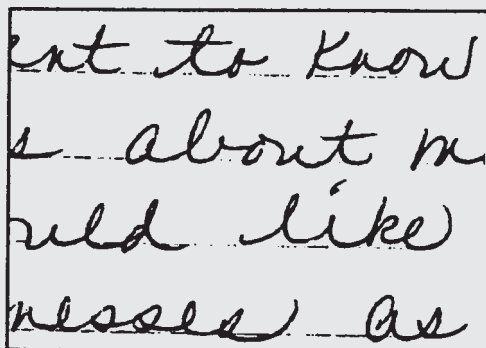 ent to know
s about m
ould like
nesses as